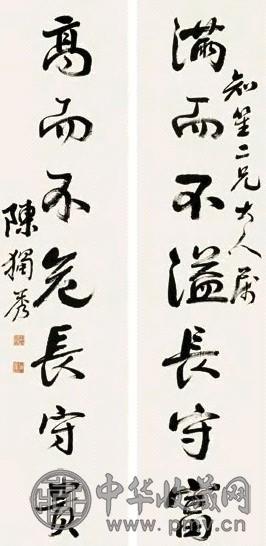 知笙二兄大人屬
滿而不溢長守富
髙而不危長守貴
陳獨秀
中华收藏网